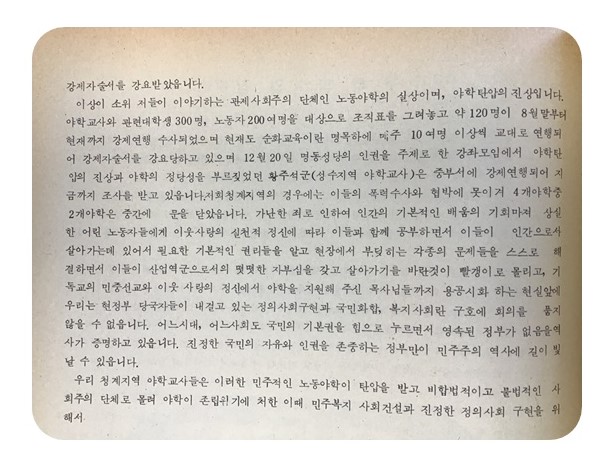 강제자술서를 강요받았읍니다.
이상이 소위 저들이 이야기하는 관제사회주의 단체인 노동야학의 실상이며, 야학탄압의 진상입니다.
야학교사와 관련대학생 300명, 노동자 200여명을 대상으로 조직표를 그려놓고 약 120명이 8월말부터
현재까지 강제연행 수사되었으며 현재도 순화교육이란 명목하에 매주 10여명 이상씩 교대로 연행되
어 강제자술서를 강요당하고 있으며 12월 20일 명동성당의 인권을 주제로 한 강좌모임에서 야학탄
압의 진상과 야학의 정당성을 부르짖었던 황주석군(성수지역 야학교사)은 중부서에 강제연행되어 지
금까지 조사를 받고 있읍니다.저희청계지역의 경우에는 이들의 폭력수사와 협박에 못이겨 4개야학중
2개야학은 중간에 문을 닫았읍니다. 가난한 죄로 인하여 인간의 기본적인 배움의 기회마저 상실
한 어린 노동자들에게 이웃사랑의 실천적 정신에 따라 이들과 함께 공부하면서 이들이 인간으로서
살아가는데 있어서 필요한 기본적인 권리들을 알고 현장에서 부딪히는 각종의 문제들을 스스로 해
결하면서 이들이 산업역군으로서의 떳떳한 자부심을 갖고 살아가기를 바란것이 빨갱이로 몰리고, 기
독교의 민중선교와 이웃 사랑의 정신에서 야학을 지원해 주신 목사님들까지 용공시화 하는 현실앞에
우리는 현정부 당국자들이 내걸고 있는 정의사회구현과 국민화합, 복지사회란 구호에 회의를 품지
않을 수 없읍니다. 어느시대, 어느사회도 국민의 기본권을 힘으로 누르면서 영속된 정부가 없음을역
사가 증명하고 있읍니다. 진정한 국민의 자유와 인권을 존중하는 정부만이 민주주의 역사에 길이 빛
날 수 있읍니다.
우리 청계지역 야학교사들은 이러한 민주적인 노동야학이 탄압을 받고 비합법적이고 불법적인 사
회주의 단체로 몰려 야학이 존립위기에 처한 이때 민주복지 사회건설과 진정한 정의사회 구현을 위
해서